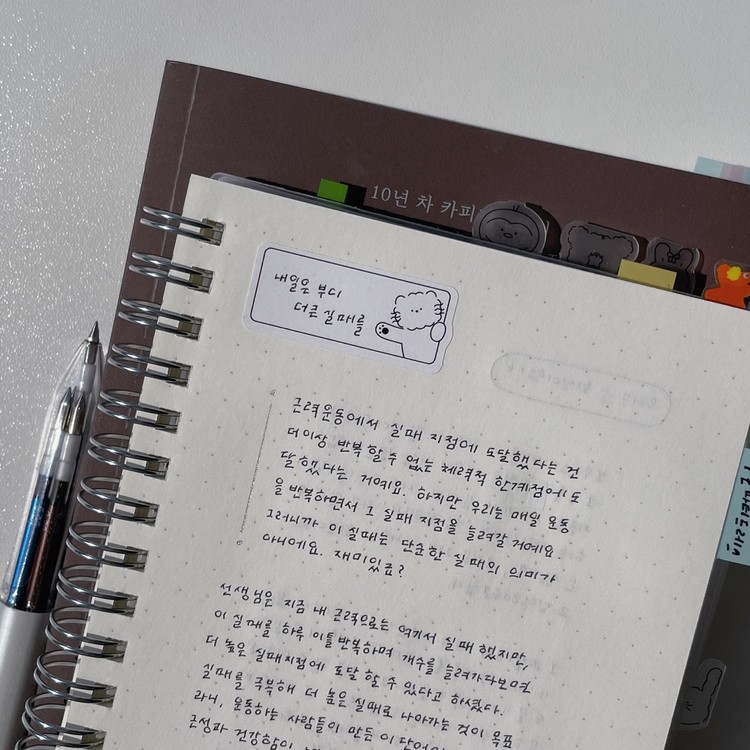 10년 차 카피
내일은 부디
더큰 실패를
근력운동에서 실패 지점에 도달했다는 건
더이상 반복할 수 없는 체력적 한계점에 도
달했다는 거예요. 하지만 우리는 매일 운동
을 반복하면서 그 실패 지점을 늘려갈 거예요.
그러니까 이 실패는 단순한 실패의 의미가
아니에요. 재미있죠?
선생님은 지금 내 근력으로는 여기서 실패했지만,
이 실패를 하루 이틀 반복하며 개수를 늘려가다보면
더 높은 실패지점에 도달 할 수 있다고 하셨다.
실패를 극복해 더 높은 실패로 나아가는 것이 목표
라니, 운동하는 사람들이 만든 이 단어
근성과 건강함이